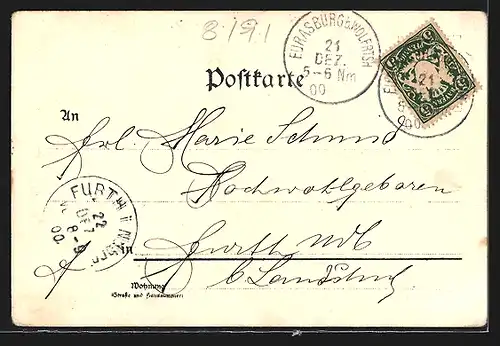 8/91
EURASBURG B. WOLFRTSH
21
DEZ.
5-6 Nm
00
21
00
Postkarte
An
Frl. Marie Schmid
Hochwohlgeboren
in Furth
b. Landshut
FURTH
22
DEZ
8-9
00
Wohnung
(Straße und Hausnummer)